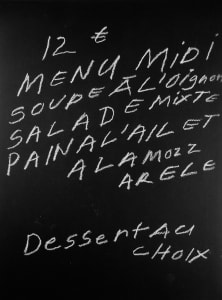 12 €
MENU MiDi
SOUPE À L'Oignon
SALADE MIXTE
PAIN A L'AIL ET
A LA MOZZ
ARELE
Dessert AU
CHOIX